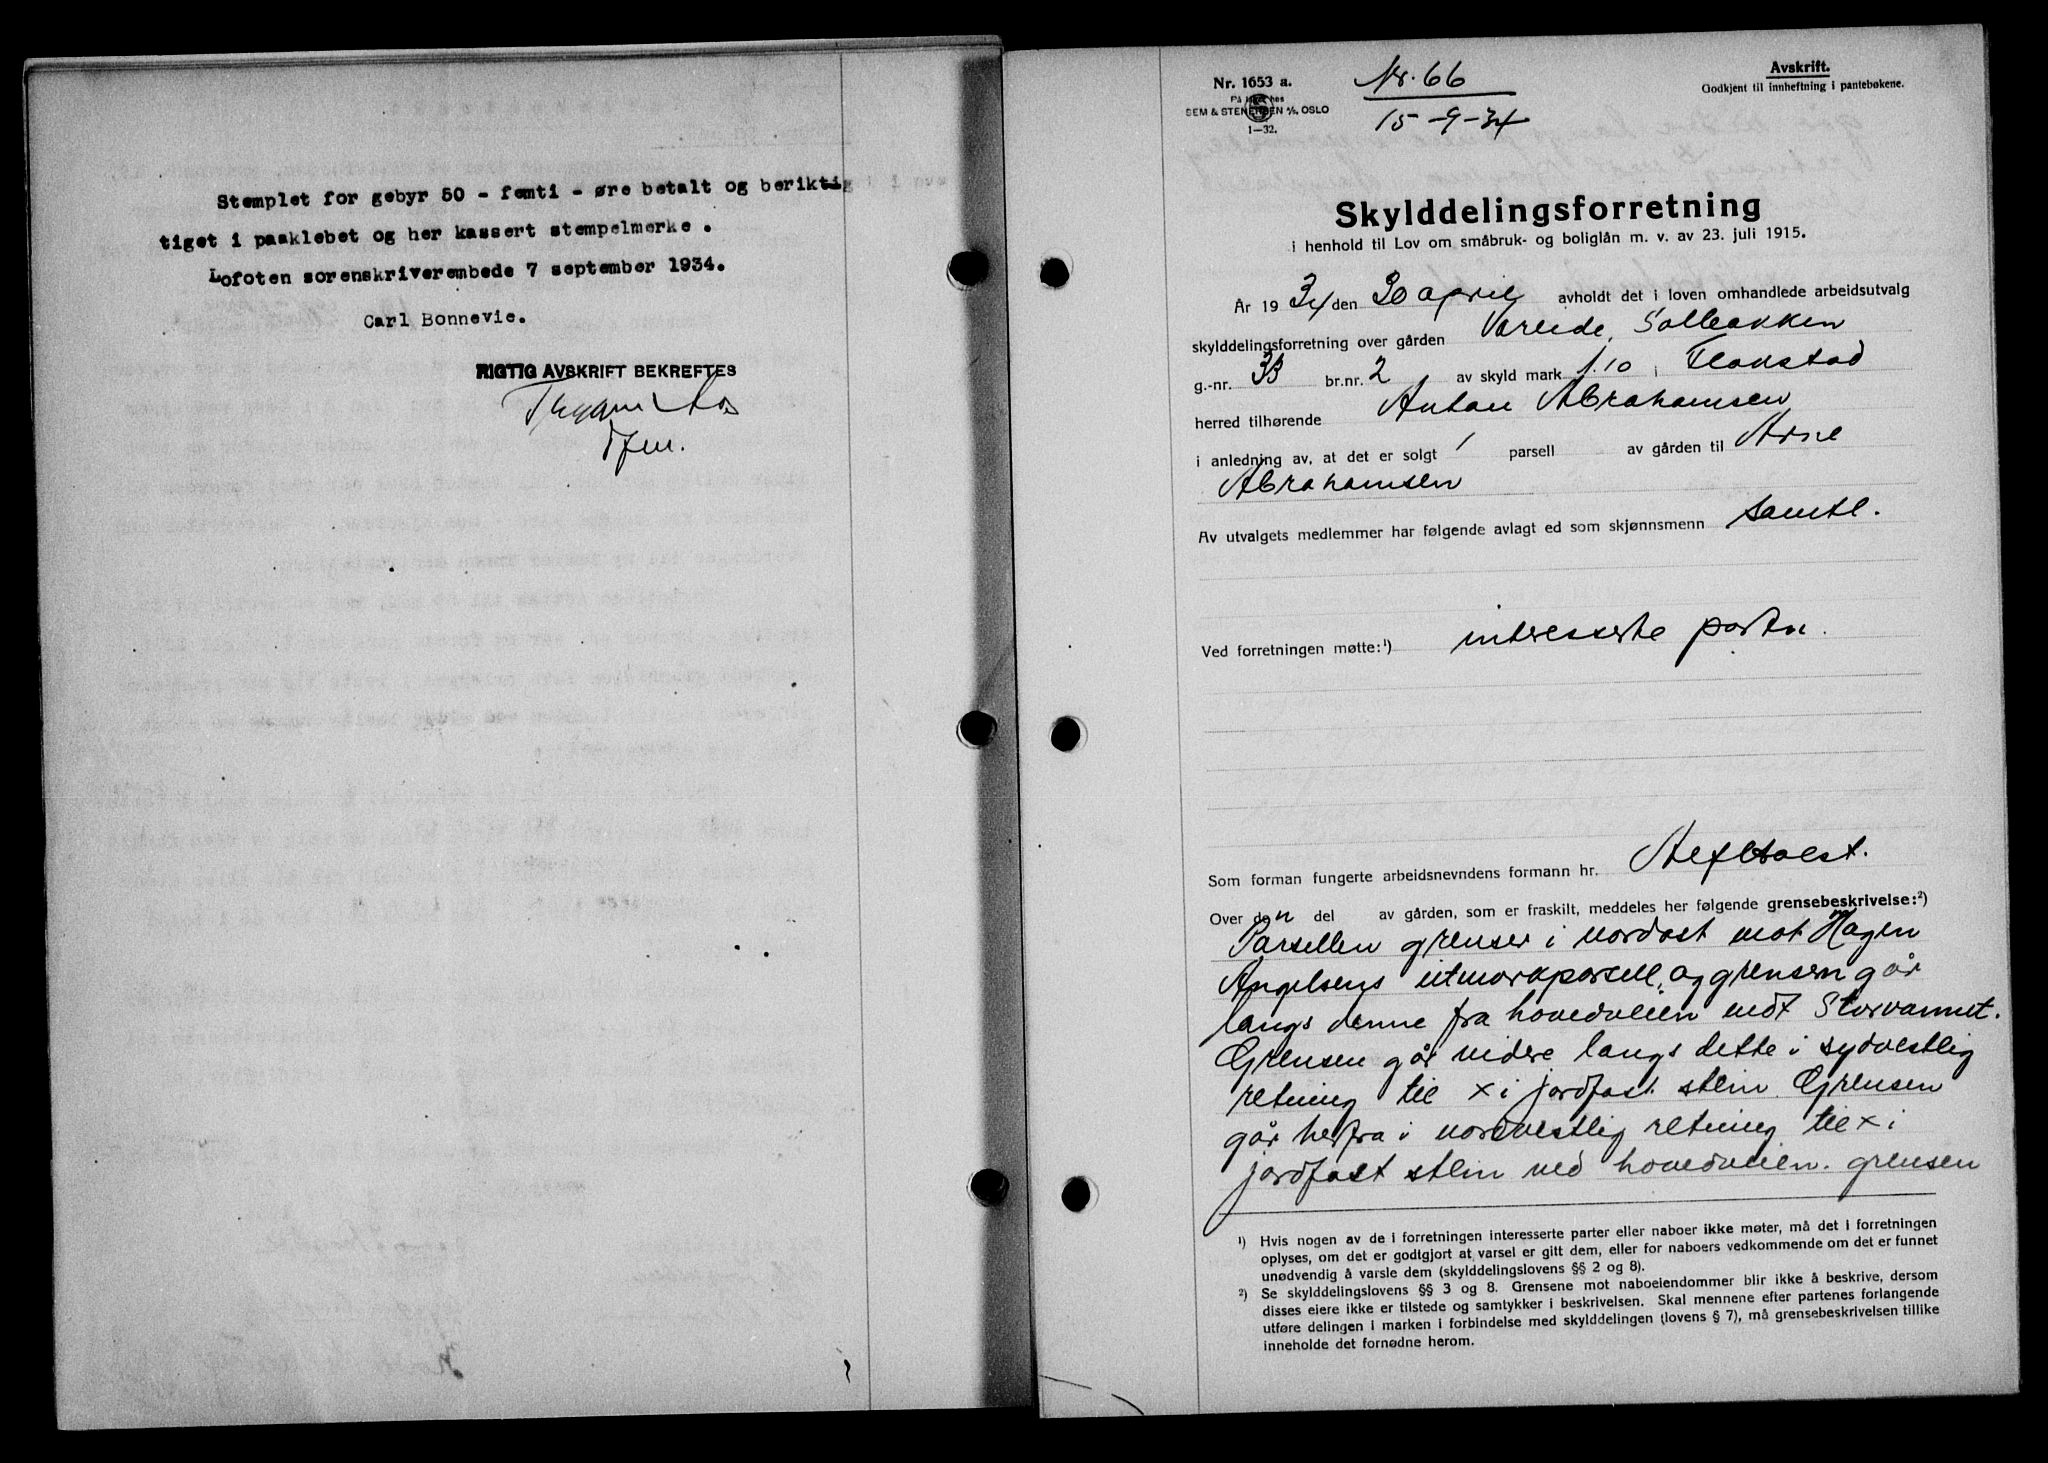 Stemplet for gebyr 50 - femti - øre betalt og beriktig
tiget i paaklebet og her kassert stempelmerke.
Lofoten sorenskriverembede 7 september 1934.
Carl Bonnevie.
RIGTIG AVSKRIFT BEKREFTES
Nr. 1653 a.
På lager hos
SEM & STENERSEN A/S OSLO
1—32.
Nr. 66
15-9-34
Avskrift.
Godkjent til innheftning i pantebøkene.
Skylddelingsforretning
i henhold til Lov om småbruk- og boliglån m. v. av 23. juli 1915.
År 1934 den 30 april avholdt det i loven omhandlede arbeidsutvalg
skylddelingsforretning over gården Vareide, Solbakken
g.-nr. 33 br.nr. 2 av skyld mark 1.10 i Flakstad
herred tilhørende Anton Abrahamsen
i anledning av, at det er solgt 1 parsell av gården til Arne
Abrahamsen
Av utvalgets medlemmer har følgende avlagt ed som skjønnsmenn samtl.
Ved forretningen møtte:¹) interesserte parter.
Som forman fungerte arbeidsnevndens formann hr.
Over den del av gården, som er fraskilt, meddeles her følgende grensebeskrivelse:²)
Parsellen grenser i nordost mot Hagen
Angelsens utmarkparsell, og grensen går
langs denne fra hovedveien mot Storvannet.
Grensen går videre langs dette i sydvestlig
retning til x i jordfast stein. Grensen
går herfra i nordvestlig retning til x i
jordfast stein ved hovedveien. grensen
¹) Hvis nogen av de i forretningen interesserte parter eller naboer ikke møter, må det i forretningen
oplyses, om det er godtgjort at varsel er gitt dem, eller for naboers vedkommende om det er funnet
unødvendig å varsle dem (skylddelingslovens §§ 2 og 8).
²) Se skylddelingslovens §§ 3 og 8. Grensene mot naboeiendommer blir ikke å beskrive, dersom
disses eiere ikke er tilstede og samtykker i beskrivelsen. Skal mennene efter partenes forlangende
utføre delingen i marken i forbindelse med skylddelingen (lovens § 7), må grensebeskrivelsen tillike
inneholde det fornødne herom.